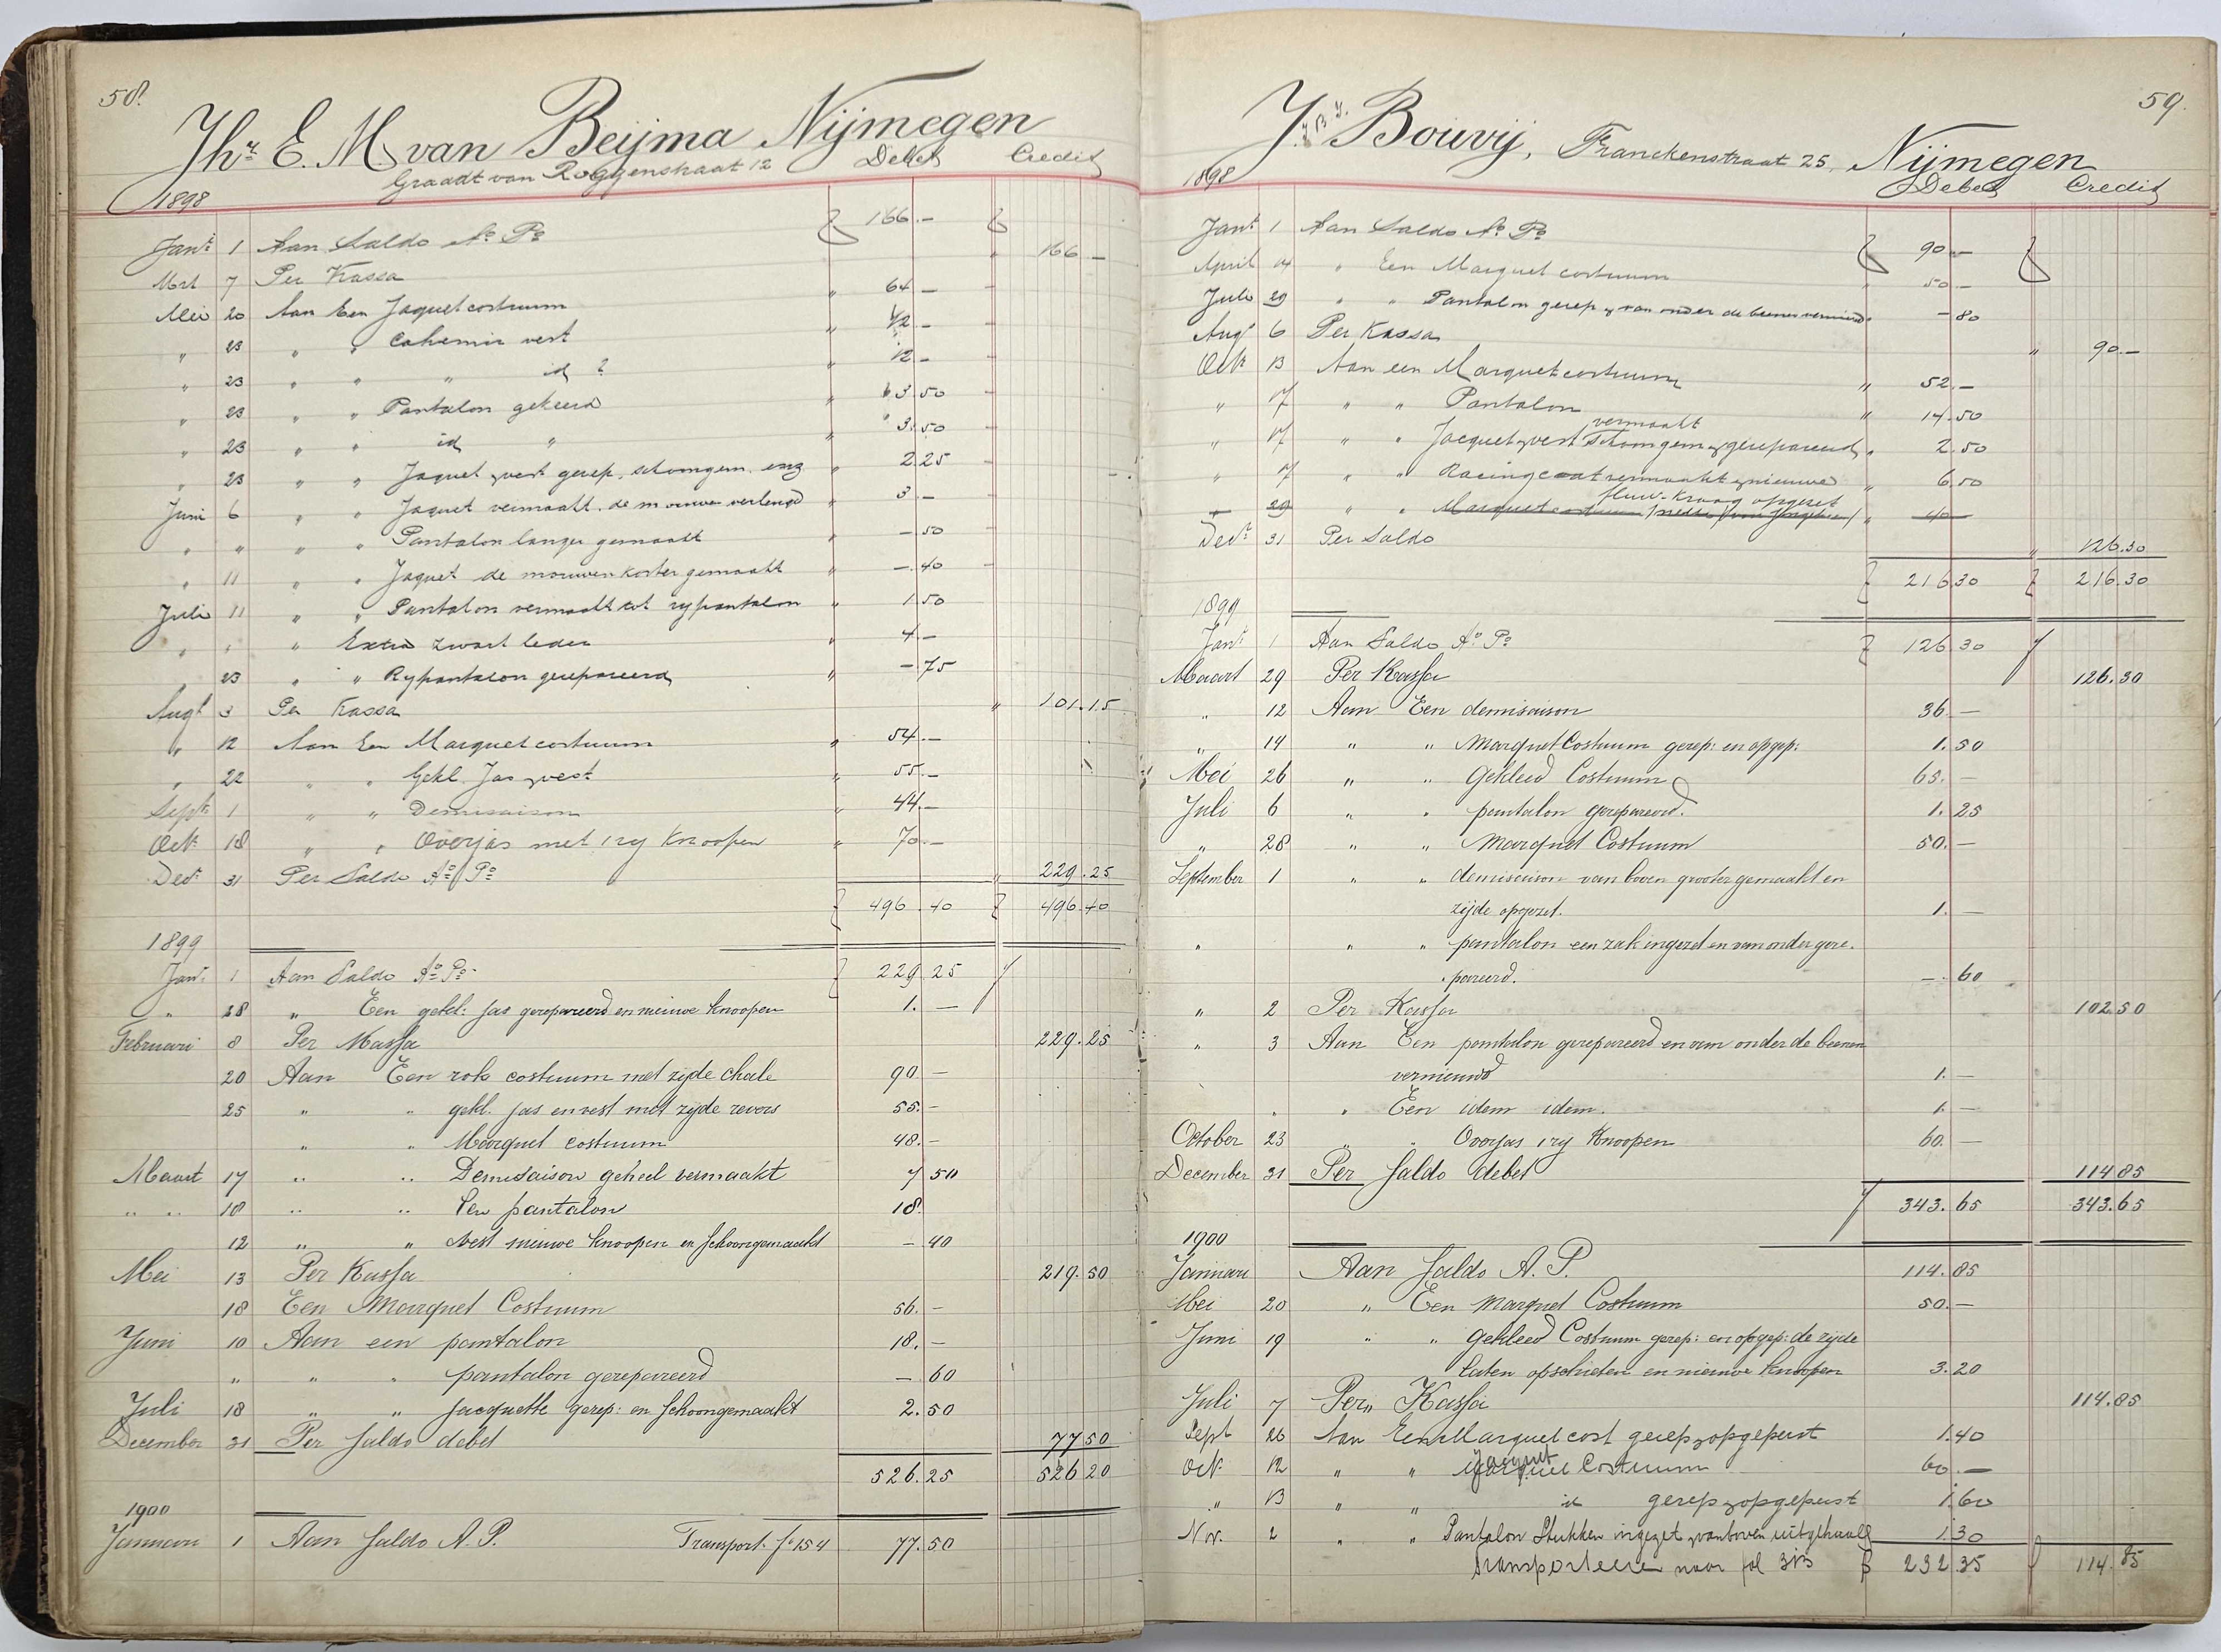 58.
Jhr. E. M van Beijma Nijmegen
Graadt van Roggenstraat 12 Debet Credit
1898
Janr. 1 Aan Saldo Ao. Po. 166.—
Mrt 7 Per Kassa " 166 —
Mei 20 Aan Een Jaquetcostuum " 64 —
" 23 " " Cahemir vest "
" 23 " " " id " 12 —
" 23 " " Pantalon gekeerd " 3.50
" 23 " " id " " 3.50
" 23 " " Jaquet & vest gerep. schoongem. enz " 2.25
Juni 6 " " Jaquet vermaakt. de mouwen verlengd " 3 —
" " " " Pantalon langer gemaakt — 50
" 11 " " Jaquet de mouwen korter gemaakt " —.40
Juli 11 " " Pantalon vermaakt tot rypantalon " 1.50
" " " Extra zwart leder " 4 —
" 23 " " Rypantalon gerepareerd " — 75
Augt 3 Per Kassa " 101.15
" 12 Aan Een Marquetcostuum " 54.—
" 22 " " Gekl. Jas & vest " 55.—
Septr 1 " " Demisaison " 44.—
Oct. 18 " " Overjas met 1 ry Knoopen " 70.—
Decr. 31 Per Saldo Ao. Po. " 229.25
496.40 496.40
1899
Janr. 1 Aan Saldo Ao. Po. 229 25
" 28 " Een gekl: Jas gerepareerd en nieuwe knoopen 1. —
Februari 8 Per Kassa 229.25
20 Aan Een rok costuum met zijde chale 90 —
25 " " gekl. Jas en vest met zijde revers 55.—
" " Marquet costuum 48.—
Maart 17 " " Demisaison geheel vermaakt 7 50
" " 18 " " Een pantalon 18.
12 " " Vest nieuwe knoopen en schoongemaakt — 40
Mei 13 Per Kassa 219.50
18 Een Marquet Costuum 56. —
Juni 10 Aan een pantalon 18. —
" " " pantalon gerepareerd — 60
Juli 18 " " Jacquette gerep: en schoongemaakt 2.50
December 31 Per Saldo debet 77 50
526.25 526 20
1900
Januari 1 Aan Saldo A. P. Transport. f. 154 77.50
59.
J. Bouvij, Franckenstraat 25, Nijmegen
1898 Debet Credit
Janr. 1 Aan Saldo Ao. Po. 90.—
April 14 " Een Marquet costuum 50 —
Juli 29 " " Pantalon gerep & van onder de beenen vernieuwd " — 80
Augt 6 Per Kassa " 90.—
Oct. 13 Aan een Marquetcostuum " 52.—
" 17 " " Pantalon " 14.50
vermaakt
" 17 " " Jacquet & vest schoongem & gerepareerd " 2.50
" 17 " " Racingcoat vermaakt & nieuwe " 6.50
fluw. Kraag opgezet
29 " " Marquet costuum " 40—
Decr. 31 Per Saldo " 126.30
216 30 216.30
1899
Janr. 1 Aan Saldo Ao. Po. 126.30
Maart 29 Per Kassa 126.30
" 12 Aan Een demisaison 36. —
" 14 " " Marquet Costuum gerep: en opgep: 1.50
Mei 26 " " Gekleed Costuum 65. —
Juli 6 " " pantalon gerepareerd. 1.25
" 28 " " Marquet Costuum 50. —
September 1 " " demisaison van boven grooter gemaakt en
zijde opgezet. 1. —
" " " pantalon een zak ingezet en van onder gere.
pareerd. —. 60
" 2 Per Kassa 102.50
" 3 Aan Een pantalon gerepareerd en van onder de beenen
vernieuwd 1. —
" " Een idem idem. 1. —
October 23 " " Overjas 1 ry Knoopen 60. —
December 31 Per Saldo debet 114 85
343.65 343.65
1900
Januari Aan Saldo A. P. 114.85
Mei 20 " Een Marquet Costuum 50. —
Juni 19 " " Gekleed Costuum gerep: en opgep: de zijde
laten opschieten en nieuwe knoopen 3.20
Juli 7 Per " Kassa 114.85
Sept 26 Aan Een Marquet cost gerep & opgeperst 1.40
Jaquet
Oct. 12 " " Marquet Costuum 60.—
" 13 " " id gerep & opgeperst 1.60
Nov. 2 " " Pantalon Stukken ingezet & vanboven uitgehaald 1.30
transporteere naar fol 313 232.35 114.85